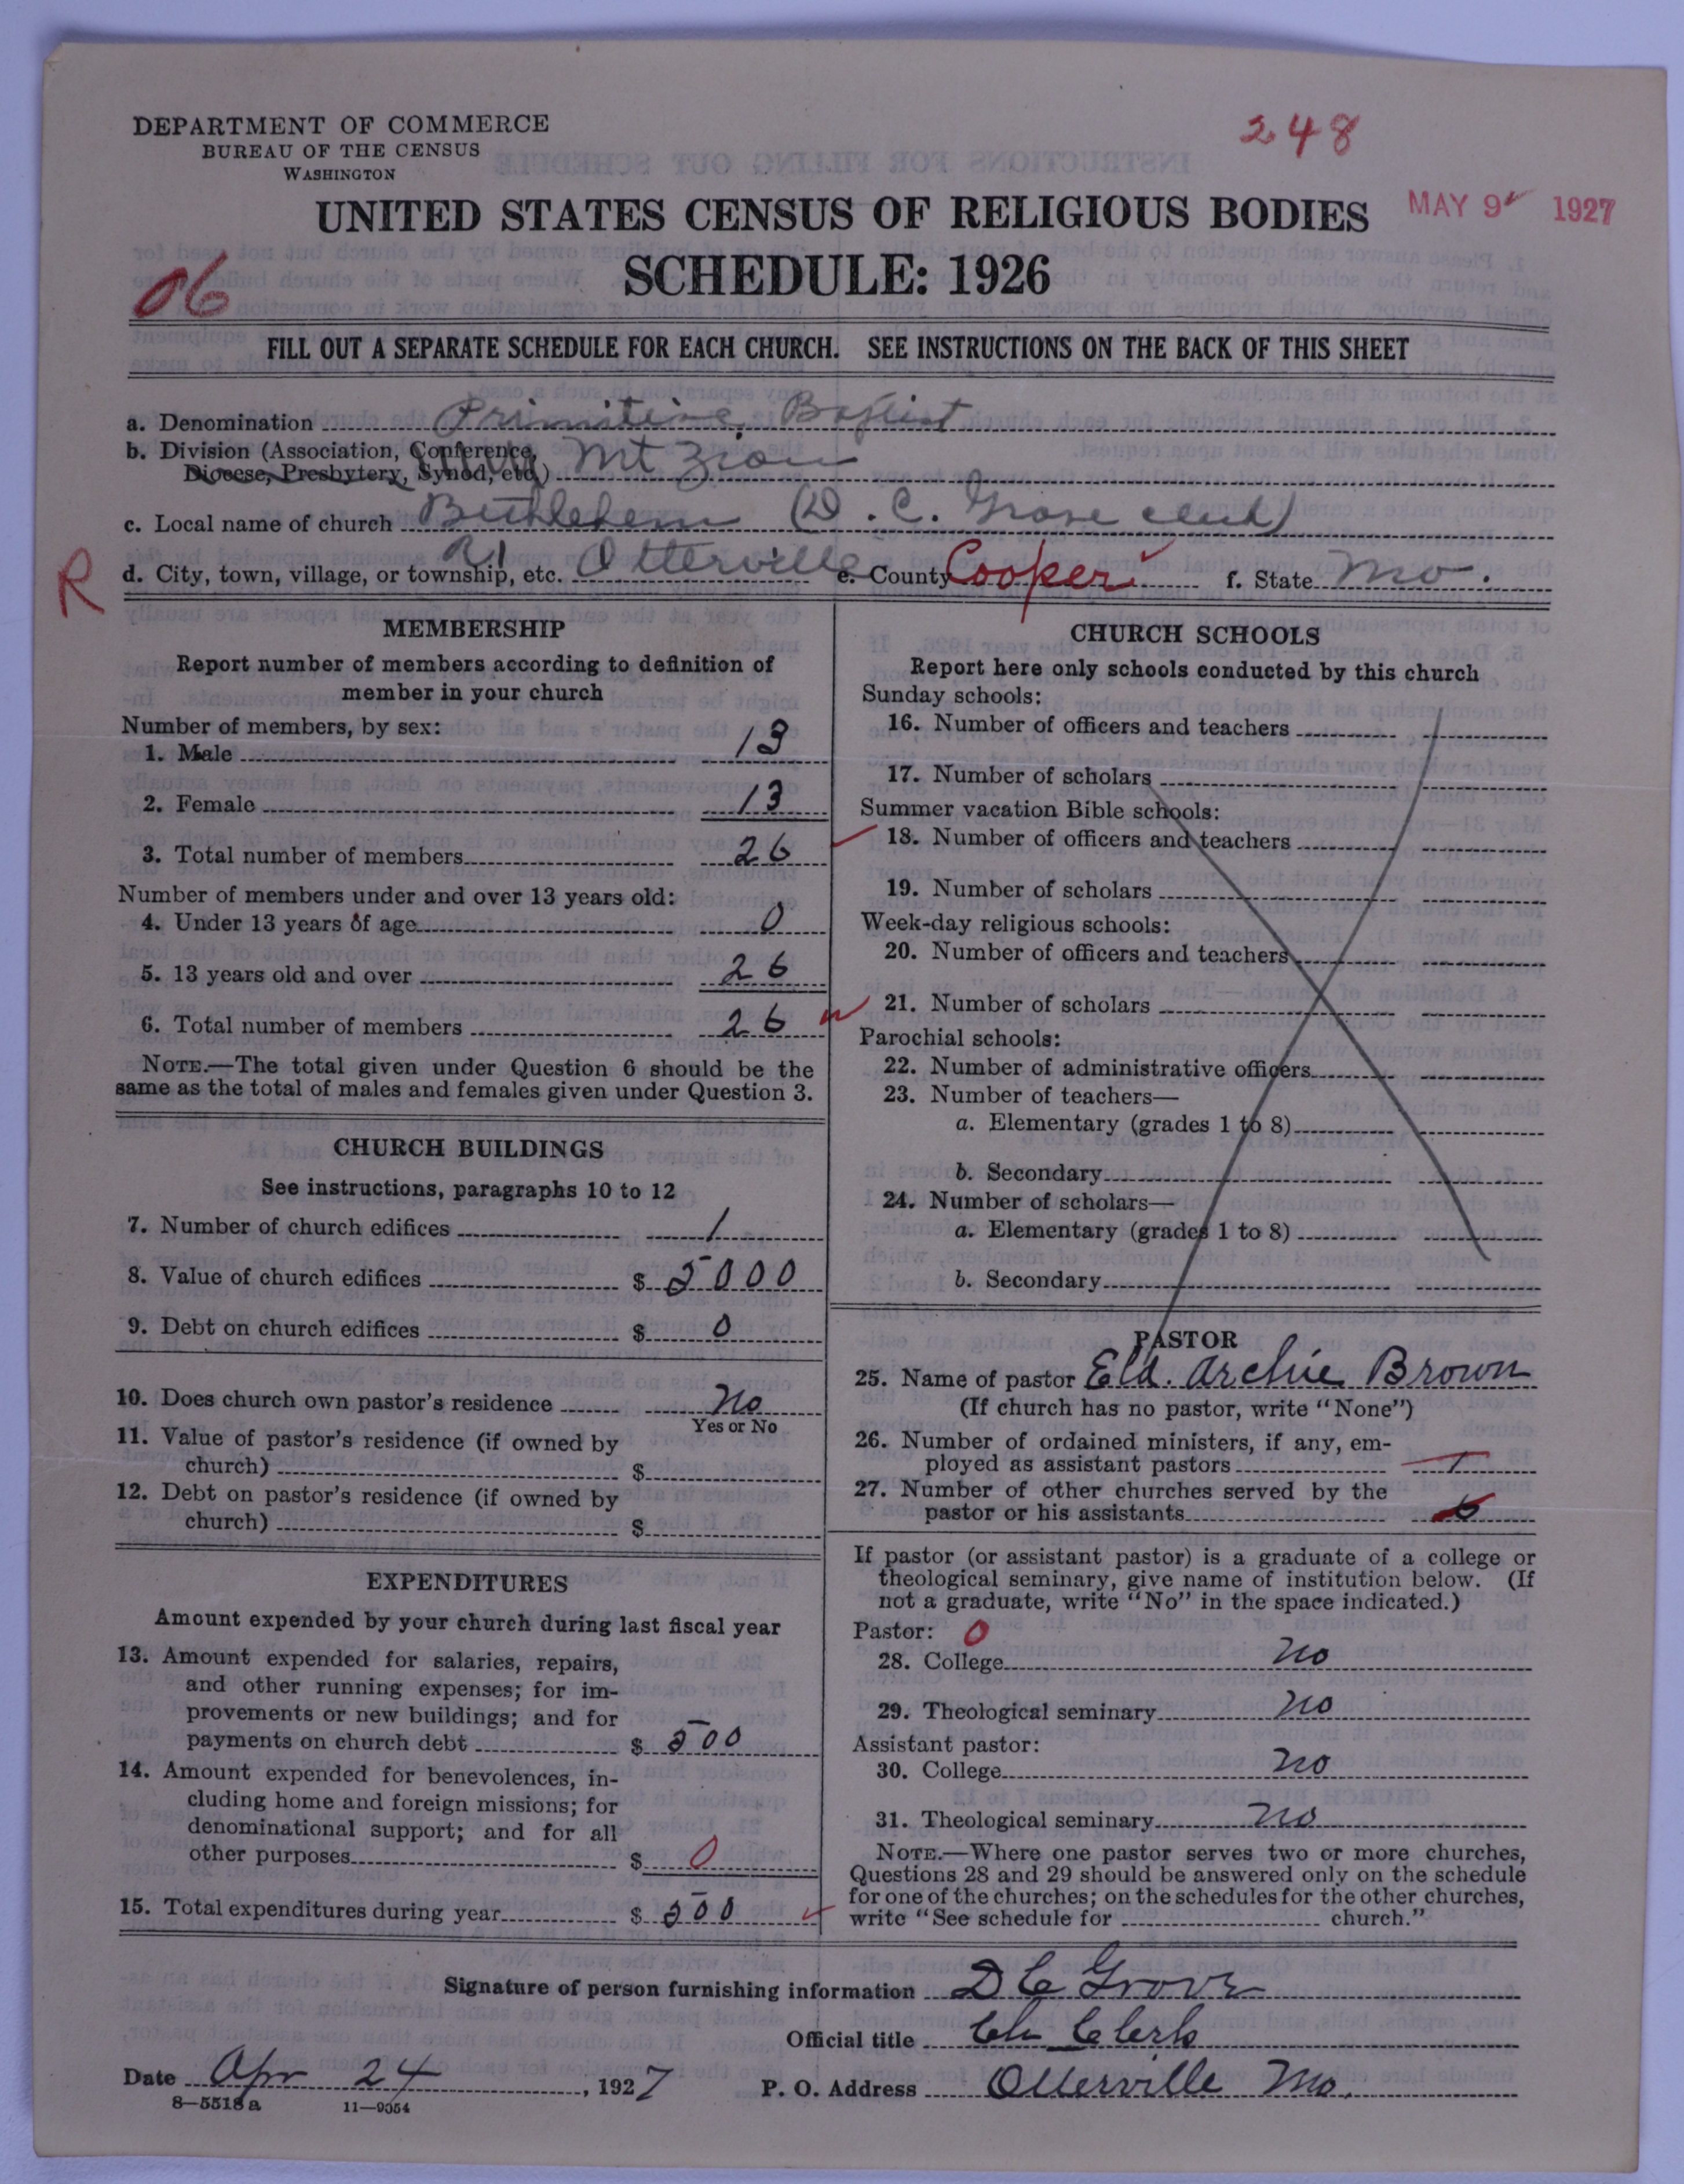 DEPARTMENT OF COMMERCE
BUREAU OF THE CENSUS
WASHINGTON
248
UNITED STATES CENSUS OF RELIGIOUS BODIES
MAY 9 1927
SCHEDULE: 1926
06
FILL OUT A SEPARATE SCHEDULE FOR EACH CHURCH. SEE INSTRUCTIONS ON THE BACK OF THIS SHEET
a. Denomination Primitive Baptist
b. Division (Association, Conference, Diocese, Presbytery, Synod, etc.) Mt Zion
c. Local name of church Bethlehem (D. C. Grove clerk)
R
d. City, town, village, or township, etc. R1 Otterville e. County Cooper f. State Mo.
MEMBERSHIP
Report number of members according to definition of
member in your church
Number of members, by sex:
1. Male 13
2. Female 13
3. Total number of members 26
Number of members under and over 13 years old:
4. Under 13 years of age 0
5. 13 years old and over 26
6. Total number of members 26
NOTE.—The total given under Question 6 should be the
same as the total of males and females given under Question 3.
CHURCH BUILDINGS
See instructions, paragraphs 10 to 12
7. Number of church edifices 1
8. Value of church edifices $ 5000
9. Debt on church edifices $ 0
10. Does church own pastor's residence No
Yes or No
11. Value of pastor's residence (if owned by
church) $
12. Debt on pastor's residence (if owned by
church) $
EXPENDITURES
Amount expended by your church during last fiscal year
13. Amount expended for salaries, repairs,
and other running expenses; for im-
provements or new buildings; and for
payments on church debt $ 500
14. Amount expended for benevolences, in-
cluding home and foreign missions; for
denominational support; and for all
other purposes $ 0
15. Total expenditures during year $ 500
CHURCH SCHOOLS
Report here only schools conducted by this church
Sunday schools:
16. Number of officers and teachers
17. Number of scholars
Summer vacation Bible schools:
18. Number of officers and teachers
19. Number of scholars
Week-day religious schools:
20. Number of officers and teachers
21. Number of scholars
Parochial schools:
22. Number of administrative officers
23. Number of teachers—
a. Elementary (grades 1 to 8)
b. Secondary
24. Number of scholars—
a. Elementary (grades 1 to 8)
b. Secondary
PASTOR
25. Name of pastor Eld. Archie Brown
(If church has no pastor, write "None")
26. Number of ordained ministers, if any, em-
ployed as assistant pastors
27. Number of other churches served by the
pastor or his assistants
If pastor (or assistant pastor) is a graduate of a college or
theological seminary, give name of institution below. (If
not a graduate, write "No" in the space indicated.)
Pastor: 0
28. College No
29. Theological seminary No
Assistant pastor:
30. College No
31. Theological seminary No
NOTE.—Where one pastor serves two or more churches,
Questions 28 and 29 should be answered only on the schedule
for one of the churches; on the schedules for the other churches,
write "See schedule for church."
Signature of person furnishing information D C Grove
Official title Ch Clerk
Date Apr 24, 1927 P. O. Address Otterville Mo.
8—5518a 11—9054